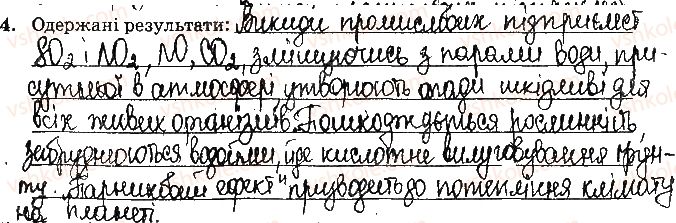 4. Одержані результати: Викиди промислових підприємст
SO₂ і NO₂, NO, CO₂, змішуючись з парами води, при-
сутньої в атмосфері утворюють опади шкідливі для
всіх живих організмів. Пошкоджується рослинність,
забруднюються водойми, йде кислотне вилуговування ґрун-
ту. "Парниковий ефект" призводить до потепління клімату
на планеті.